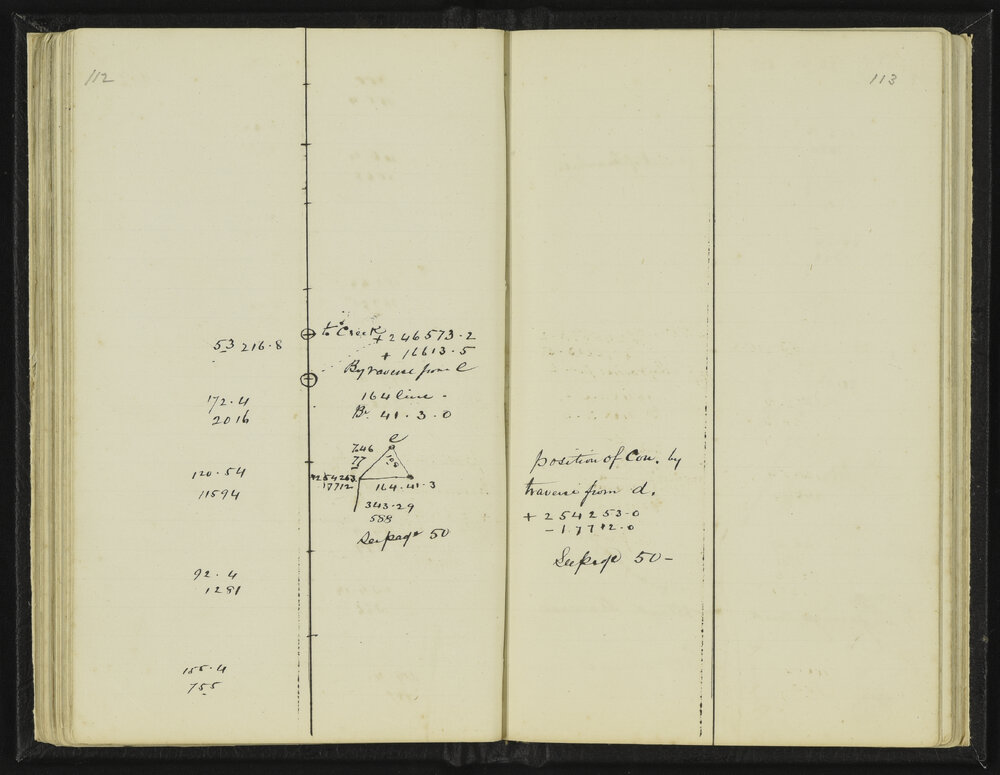 112
53 216.8
172.4
2016
120.54
11594
92.4
1281
155.4
755
to Creek
+246573.2
+ 16613.5
By traverse from C
164 line.
Br. 41.3.0
C
746
77
108
254263
17712
164.41.3
343.29
588
See page 50
113
position of Con. by
traverse from d.
+ 254253.0
- 17712.0
See page 50-